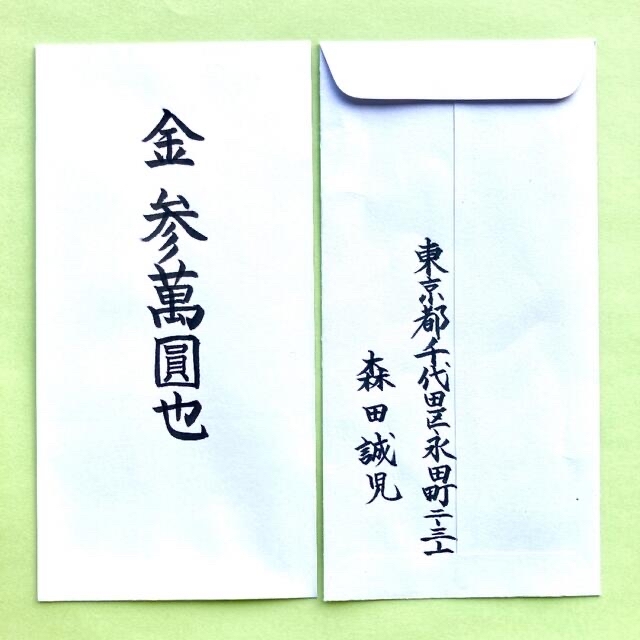 金 参萬圓也
東京都千代田区永田町二-三-一
森田誠児